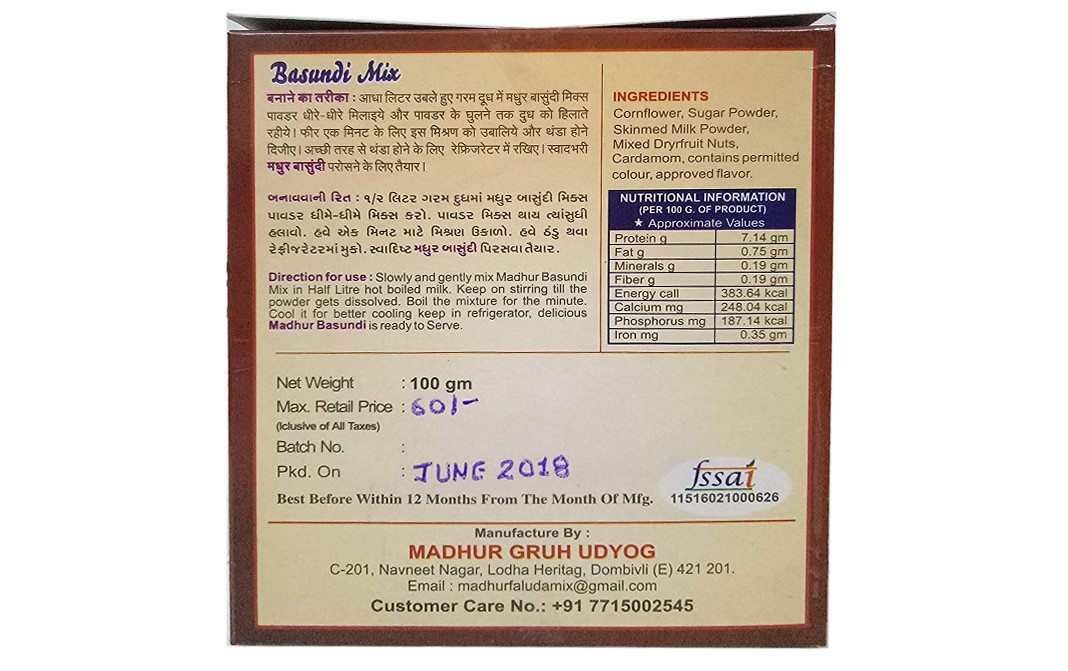 Basundi Mix
बनाने का तरीका : आधा लिटर उबले हुए गरम दूध में मधुर बासुंदी मिक्स
पावडर धीरे-धीरे मिलाइये और पावडर के घुलने तक दुध को हिलाते
रहीये। फीर एक मिनट के लिए इस मिश्रण को उबालिये और थंडा होने
दिजीए। अच्छी तरह से थंडा होने के लिए रेफ्रिजरेटर में रखिए। स्वादभरी
मधुर बासुंदी परोसने के लिए तैयार।
બનાવવાની રિત : ૧/૨ લિટર ગરમ દુધમાં મધુર બાસુંદી મિક્સ
પાવડર ધીમે-ધીમે મિક્સ કરો. પાવડર મિક્સ થાય ત્યાંસુધી
હલાવો. હવે એક મિનટ માટે મિશ્રણ ઉકાળો. હવે ઠંડુ થવા
રેફ્રીજરેટરમાં મુકો. સ્વાદિષ્ટ મધુર બાસુંદી પિરસવા તૈયાર.
Direction for use : Slowly and gently mix Madhur Basundi
Mix in Half Litre hot boiled milk. Keep on stirring till the
powder gets dissolved. Boil the mixture for the minute.
Cool it for better cooling keep in refrigerator, delicious
Madhur Basundi is ready to Serve.
INGREDIENTS
Cornflower, Sugar Powder,
Skinmed Milk Powder,
Mixed Dryrfruit Nuts,
Cardamom, contains permitted
colour, approved flavor.
NUTRITIONAL INFORMATION
(PER 100 G. OF PRODUCT)
★ Approximate Values
Protein g 7.14 gm
Fat g 0.75 gm
Minerals g 0.19 gm
Fiber g 0.19 gm
Energy call 383.64 kcal
Calcium mg 248.04 kcal
Phosphorus mg 187.14 kcal
Iron mg 0.35 gm
Net Weight : 100 gm
Max. Retail Price : 60/-
(Iclusive of All Taxes)
Batch No. :
Pkd. On : JUNE 2018
Best Before Within 12 Months From The Month Of Mfg.
fssai
11516021000626
Manufacture By :
MADHUR GRUH UDYOG
C-201, Navneet Nagar, Lodha Heritag, Dombivli (E) 421 201.
Email : madhurfaludamix@gmail.com
Customer Care No.: +91 7715002545